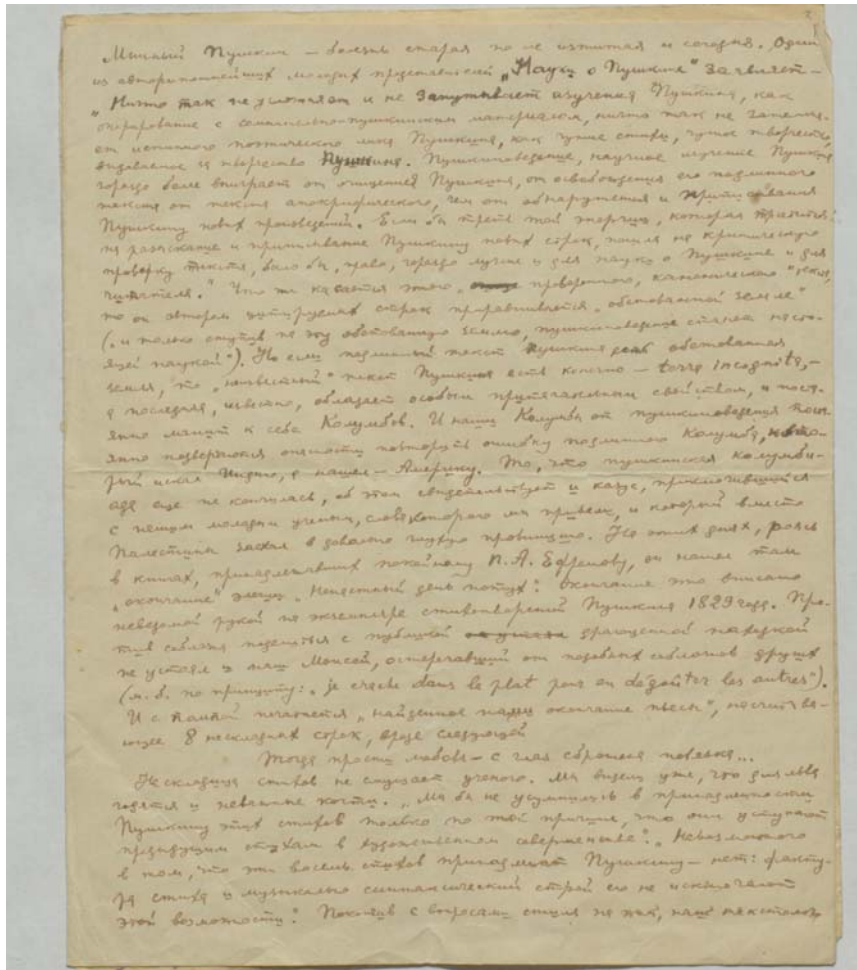 2
Мнимый Пушкин — болезнь старая но не изжитая и сегодня. Один
из авторитетнейших молодых представителей „Науки о Пушкине" заявляет —
„Ничто так не усложняет и не запутывает изучения Пушкина, как
оперирование с сомнительно пушкинским материалом, ничто так не затемня-
ет истинного поэтического лика Пушкина, как чужие стихи, чужое творчество
выдаваемое за творчество Пушкина. Пушкиноведение, научное изучение Пушкина
гораздо более выиграет от очищения Пушкина, от освобождения его подлинного
текста от текста апокрифического, чем от обнаружения и приписывания
Пушкину новых произведений. Если бы треть той энергии, которая тратится
на разыскание и приписывание Пушкину новых строк, пошла на критическую
проверку текста, было бы, право, гораздо лучше и для науки о Пушкине и для
читателя." Что же касается этого „ проверенного, канонического "текста,
то он автором цитируемых строк приравнивается „обетованной земле"
(„и только ступив на эту обетованную землю, пушкиноведение станет насто-
ящей наукой"). Но если подлинный текст Пушкина есть обетованная
земля, то „неизвестный" текст Пушкина есть конечно — terra incognita, —
а последняя, известно, обладает особым притягательным свойством, и посто-
янно манит к себе Колумбов. И наши Колумбы от пушкиноведения посто-
янно подвергаются опасности повторить ошибку подлинного Колумба, кото-
рый искал Индию, а нашел — Америку. То, что пушкинская колумби-
ада еще не кончилась, об этом свидетельствует и казус, приключившийся
с нашим молодым ученым, слова которого мы привели, и который вместо
Палестины заехал в довольно глухую провинцию. На этих днях, роясь
в книгах, принадлежавших покойному П. А. Ефремову, он нашел там
„окончание" элегии „Ненастный день потух". Окончание это вписано
неведомой рукой на экземпляре стихотворений Пушкина 1829 года. Про-
тив соблазна поделиться с публикой драгоценной находкой
не устоял и наш Моисей, остерегавший от подобных соблазнов других
(м. б. по принципу: „je crache dans le plat pour en dégoûter les autres").
И с помпой печатается „найденное нами окончание пьесы", насчитыва-
ющее 8 нескладных строк, вроде следующей
Тогда прости любовь — с глаз сброшена повязка...
Нескладица стихов не смущает ученого. Мы видели уже, что для льва
годятся и невзрачные кости. „Мы бы не усумнились в принадлежности
Пушкину этих стихов только по той причине, что они уступают
предыдущим стихам в художественном совершенстве". „Невозможного
в том, что эти восемь стихов принадлежат Пушкину — нет: факту-
ра стиха и музыкально синтаксический строй его не исключают
этой возможности". Покончив с вопросами стиля наш текстолог